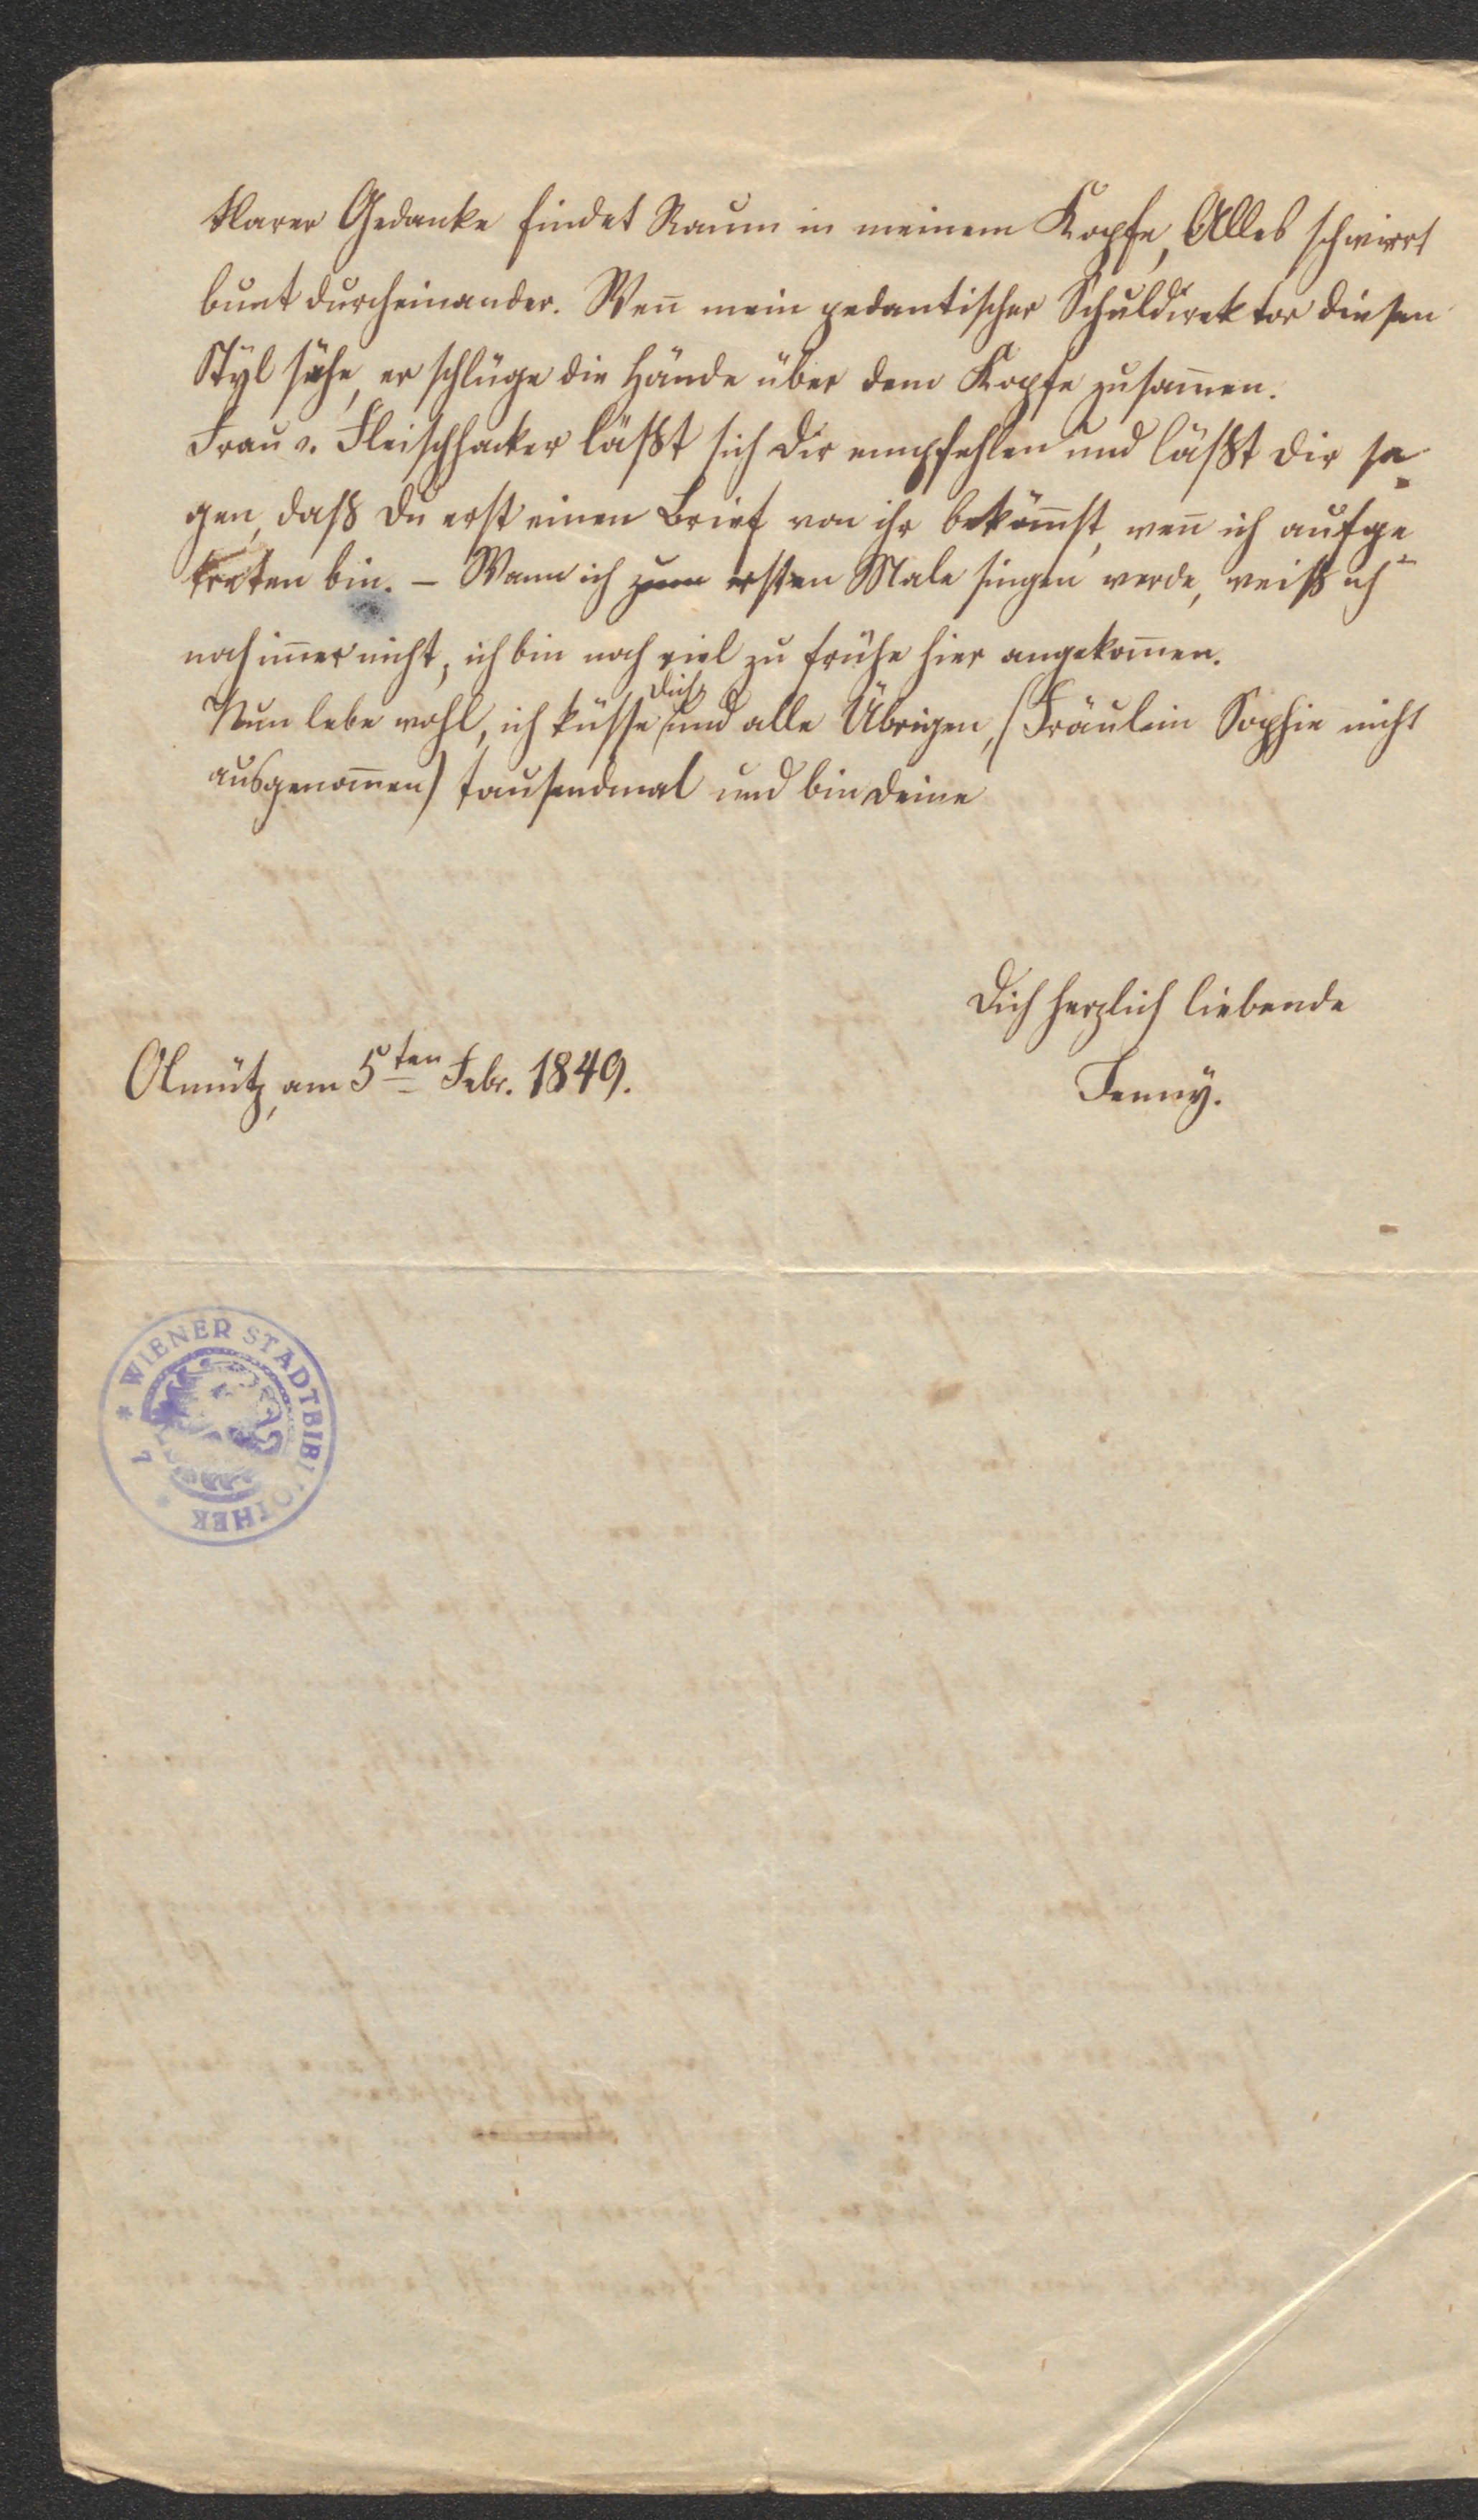 klarer Gedanke findet Raum in meinem Kopfe, Alles schwirrt
bunt durcheinander. Weñ mein pedantischer Schuldirektor diesen
Styl sähe, er schlüge die Hände über dem Kopfe zusam̄en.
Frau v. Fleischhacker läßt sich Dir empfehlen und läßt Dir sa-
gen, daß Du erst einen Brief von ihr beköm̄st, weñ ich aufge-
treten bin. – Wann ich zum ersten Male singen werde, weiß ich
noch im̄er nicht, ich bin noch viel zu frühe hier angekom̄en.
Nun lebe wohl, ich küsse Dich und alle Übrigen, (Fräulein Sophie nicht
ausgenom̄en) tausendmal und bin Deine
Dich herzlich liebende
Olmütz, am 5ten Febr. 1849.
Jenny.
* WIENER STADTBIBLIOTHEK *